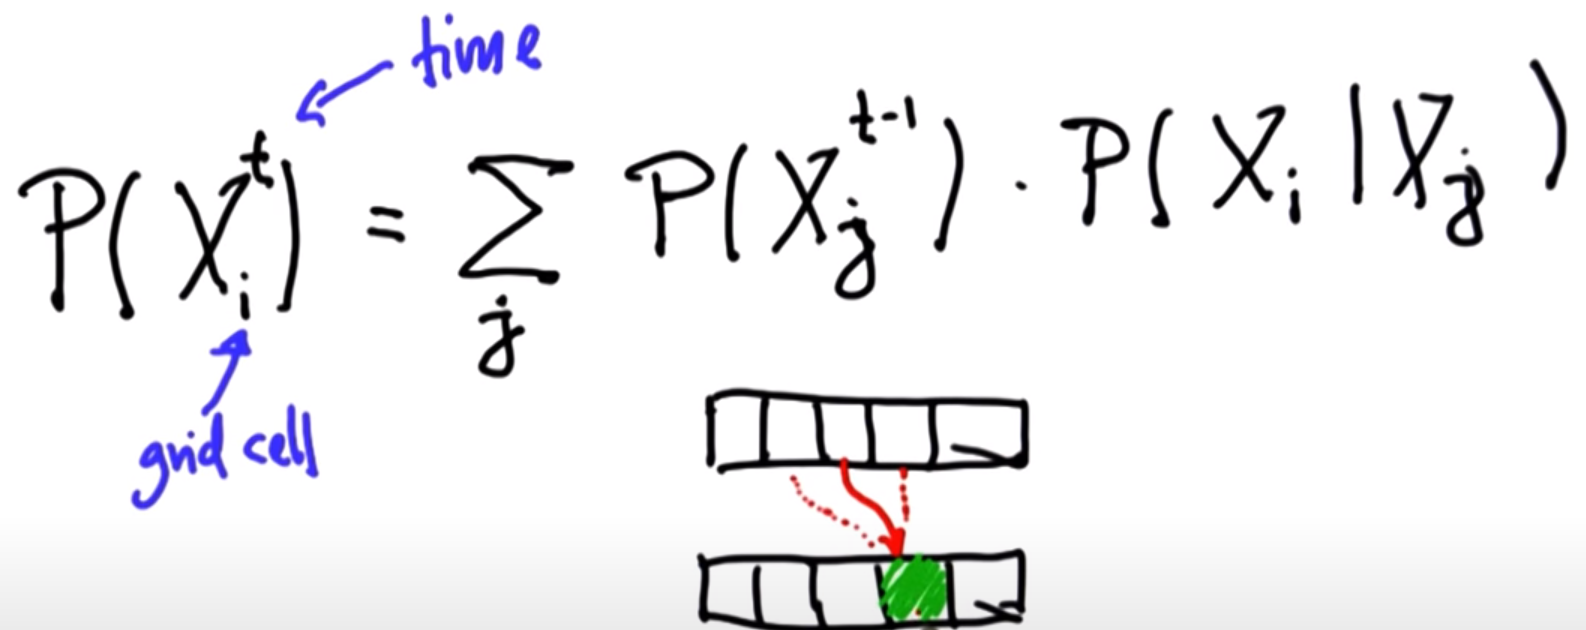 time
P(X_i^t) = Σ_j P(X_j^{t-1}) · P(X_i | X_j)
grid cell